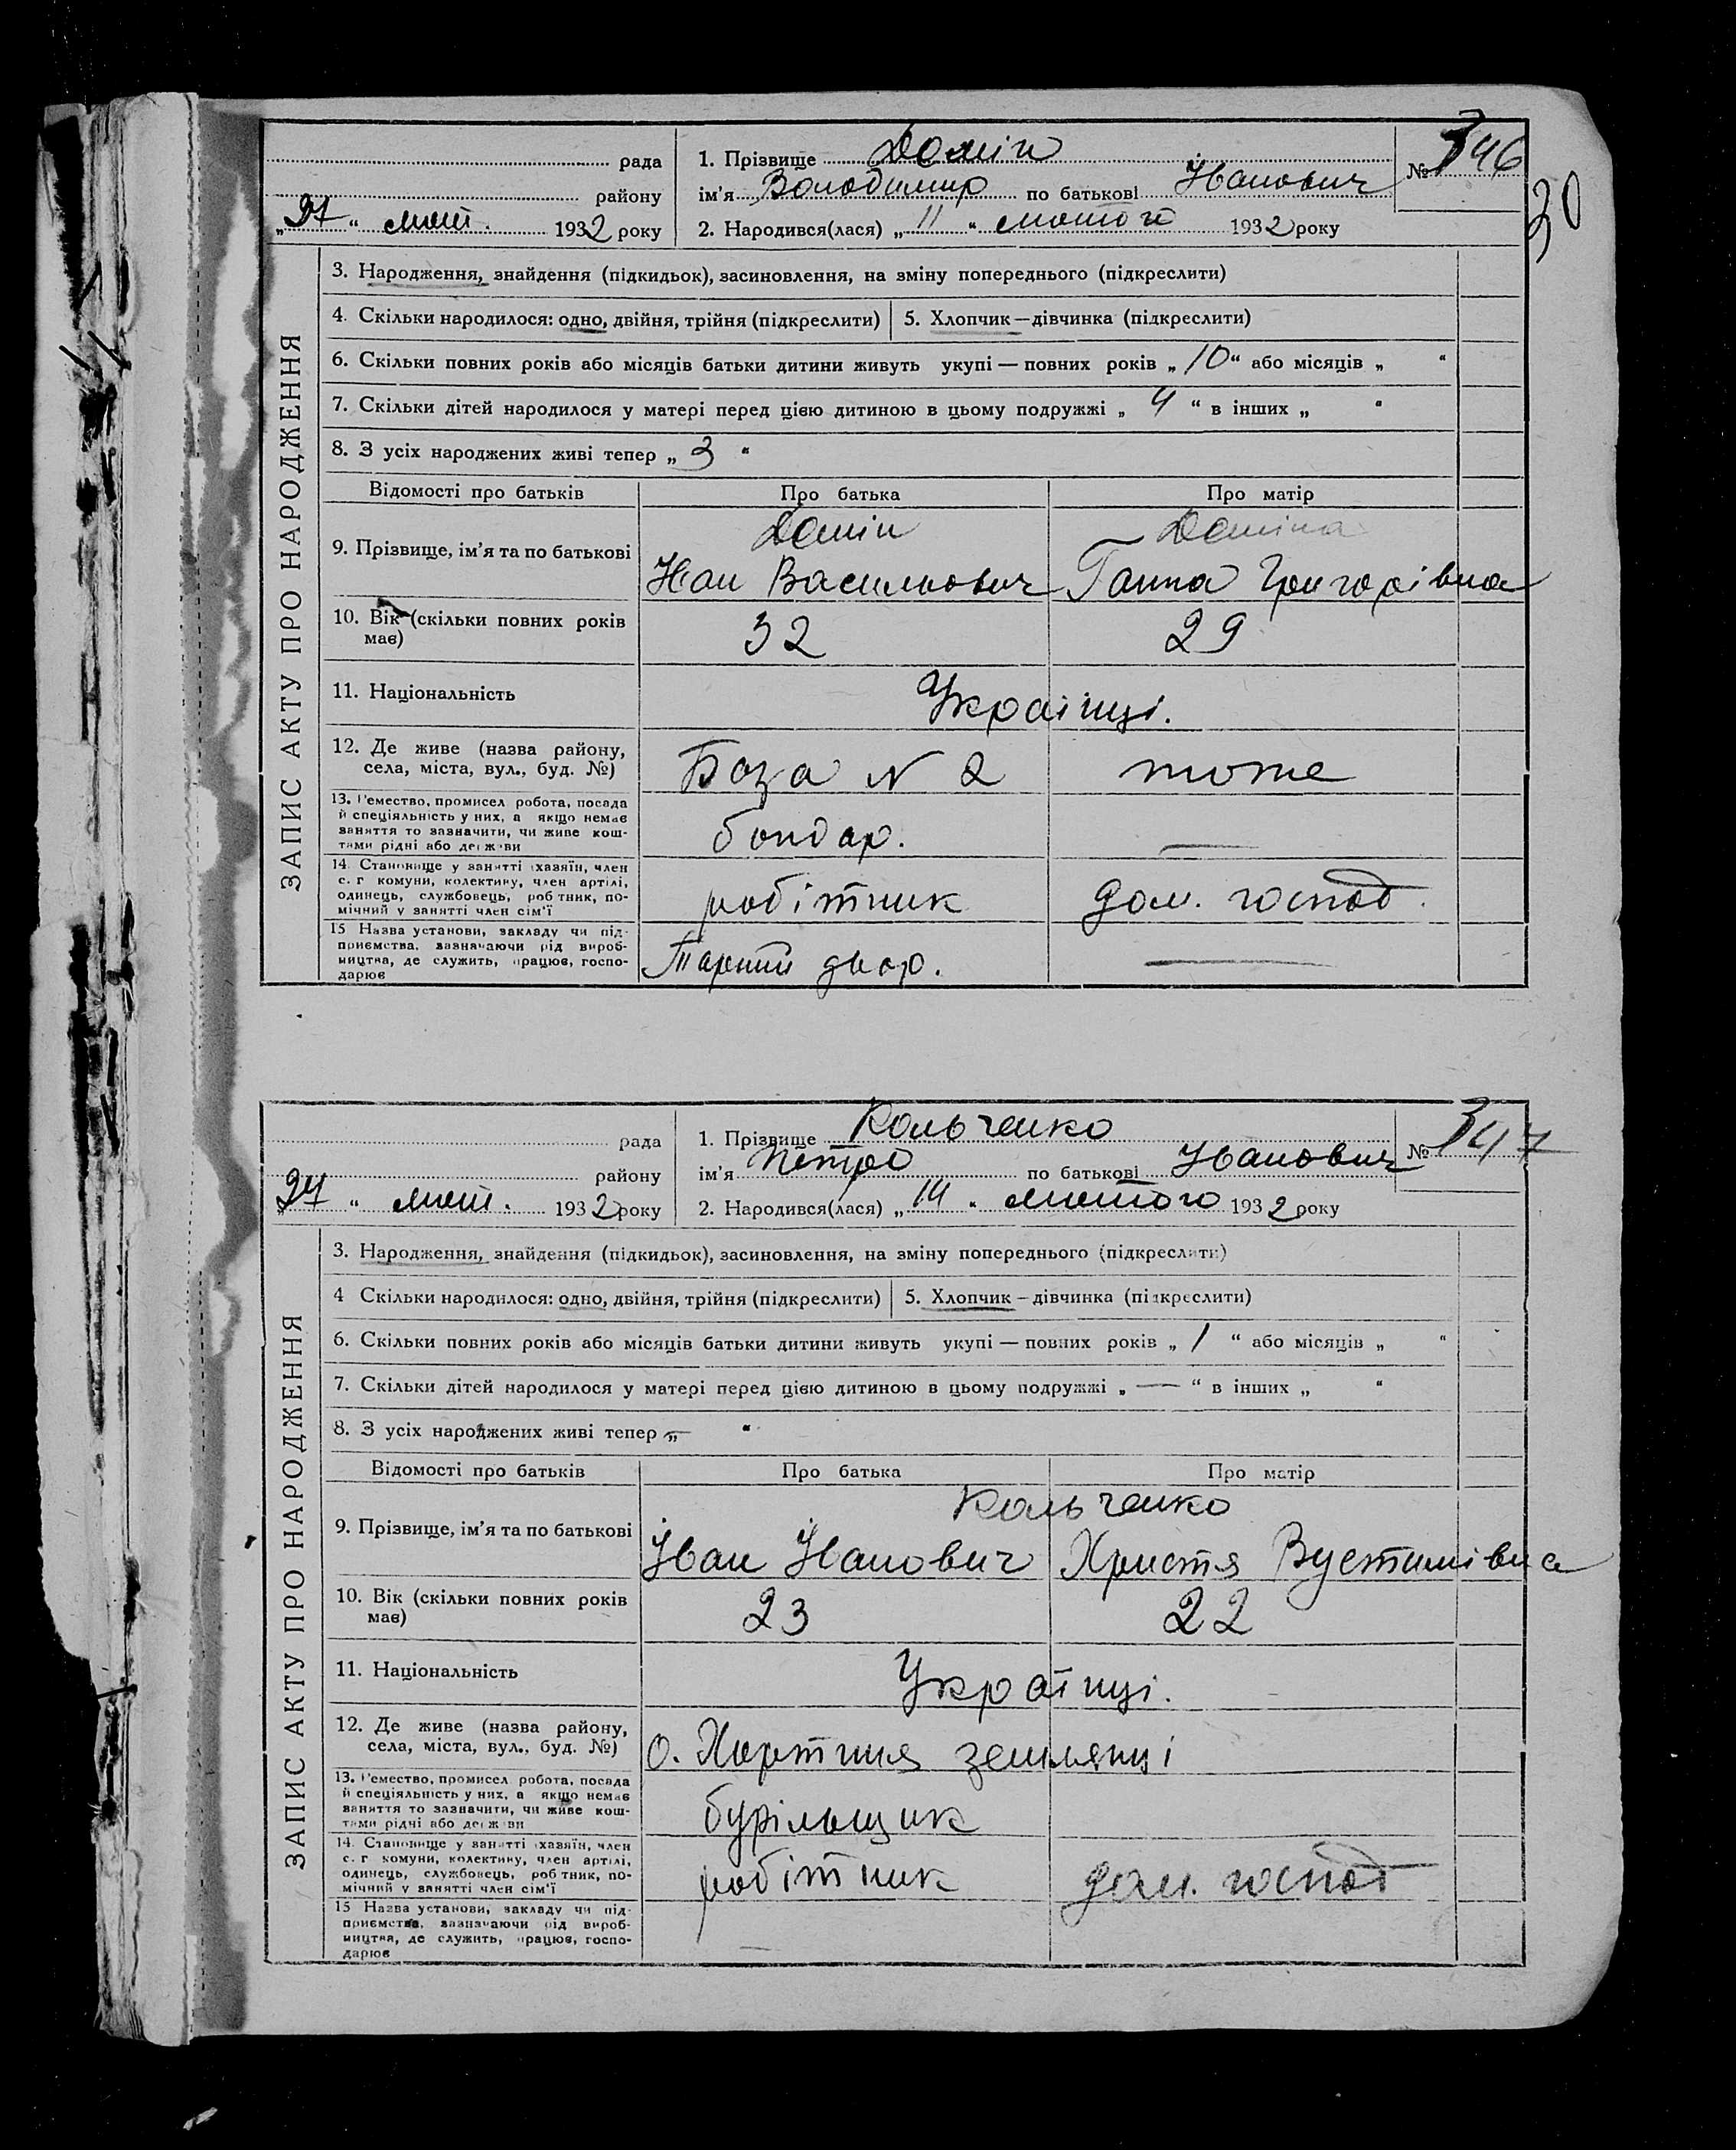 рада 1. Прізвище Домін № 346
30
району ім'я Володимир по батькові Іванович
„27“ лют. 1932 року 2. Народився(лася) „11“ лютого 1932 року
ЗАПИС АКТУ ПРО НАРОДЖЕННЯ
3. Народження, знайдення (підкидьок), засиновлення, на зміну попереднього (підкреслити)
4. Скільки народилося: одно, двійня, трійня (підкреслити) 5. Хлопчик—дівчинка (підкреслити)
6. Скільки повних років або місяців батьки дитини живуть укупі — повних років „10“ або місяців „ “
7. Скільки дітей народилося у матері перед цією дитиною в цьому подружжі „4“ в інших „ “
8. З усіх народжених живі тепер „3“
Відомості про батьків Про батька Про матір
Домін Доміна
9. Прізвище, ім'я та по батькові
Іван Васильович Ганна Григорівна
10. Вік (скільки повних років має) 32 29
11. Національність Українці.
12. Де живе (назва району, села, міста, вул., буд. №) База № 2 тоже
13. Ремество, промисел робота, посада й спеціяльність у них, а якщо немає заняття то зазначити, чи живе коштами рідні або держави бондар. —
14. Становище у занятті (хазяїн, член с. г комуни, колективу, член артілі, одинець, службовець, робітник, помічний у занятті член сім'ї робітник дом. господ.
15 Назва установи, закладу чи підприємства, зазначаючи рід виробництва, де служить, працює, господарює Тарний двор. —
рада 1. Прізвище Кольченко № 347
району ім'я Петро по батькові Іванович
27 “ лют. 1932 року 2. Народився(лася) „14“ лютого 1932 року
ЗАПИС АКТУ ПРО НАРОДЖЕННЯ
3. Народження, знайдення (підкидьок), засиновлення, на зміну попереднього (підкреслити)
4 Скільки народилося: одно, двійня, трійня (підкреслити) 5. Хлопчик—дівчинка (підкреслити)
6. Скільки повних років або місяців батьки дитини живуть укупі — повних років „1“ або місяців „ “
7. Скільки дітей народилося у матері перед цією дитиною в цьому подружжі „—“ в інших „ “
8. З усіх народжених живі тепер „— “
Відомості про батьків Про батька Про матір
Кольченко
9. Прізвище, ім'я та по батькові
Іван Іванович Христя Вустимівна
10. Вік (скільки повних років має) 23 22
11. Національність Українці.
12. Де живе (назва району, села, міста, вул., буд. №) О. Хортиця землянці
13. Ремество, промисел робота, посада й спеціяльність у них, а якщо немає заняття то зазначити, чи живе коштами рідні або держави бурільщик
14. Становище у занятті (хазяїн, член с. г комуни, колективу, член артілі, одинець, службовець, робітник, помічний у занятті член сім'ї робітник дом. господ
15 Назва установи, закладу чи підприємства, зазначаючи рід виробництва, де служить, працює, господарює